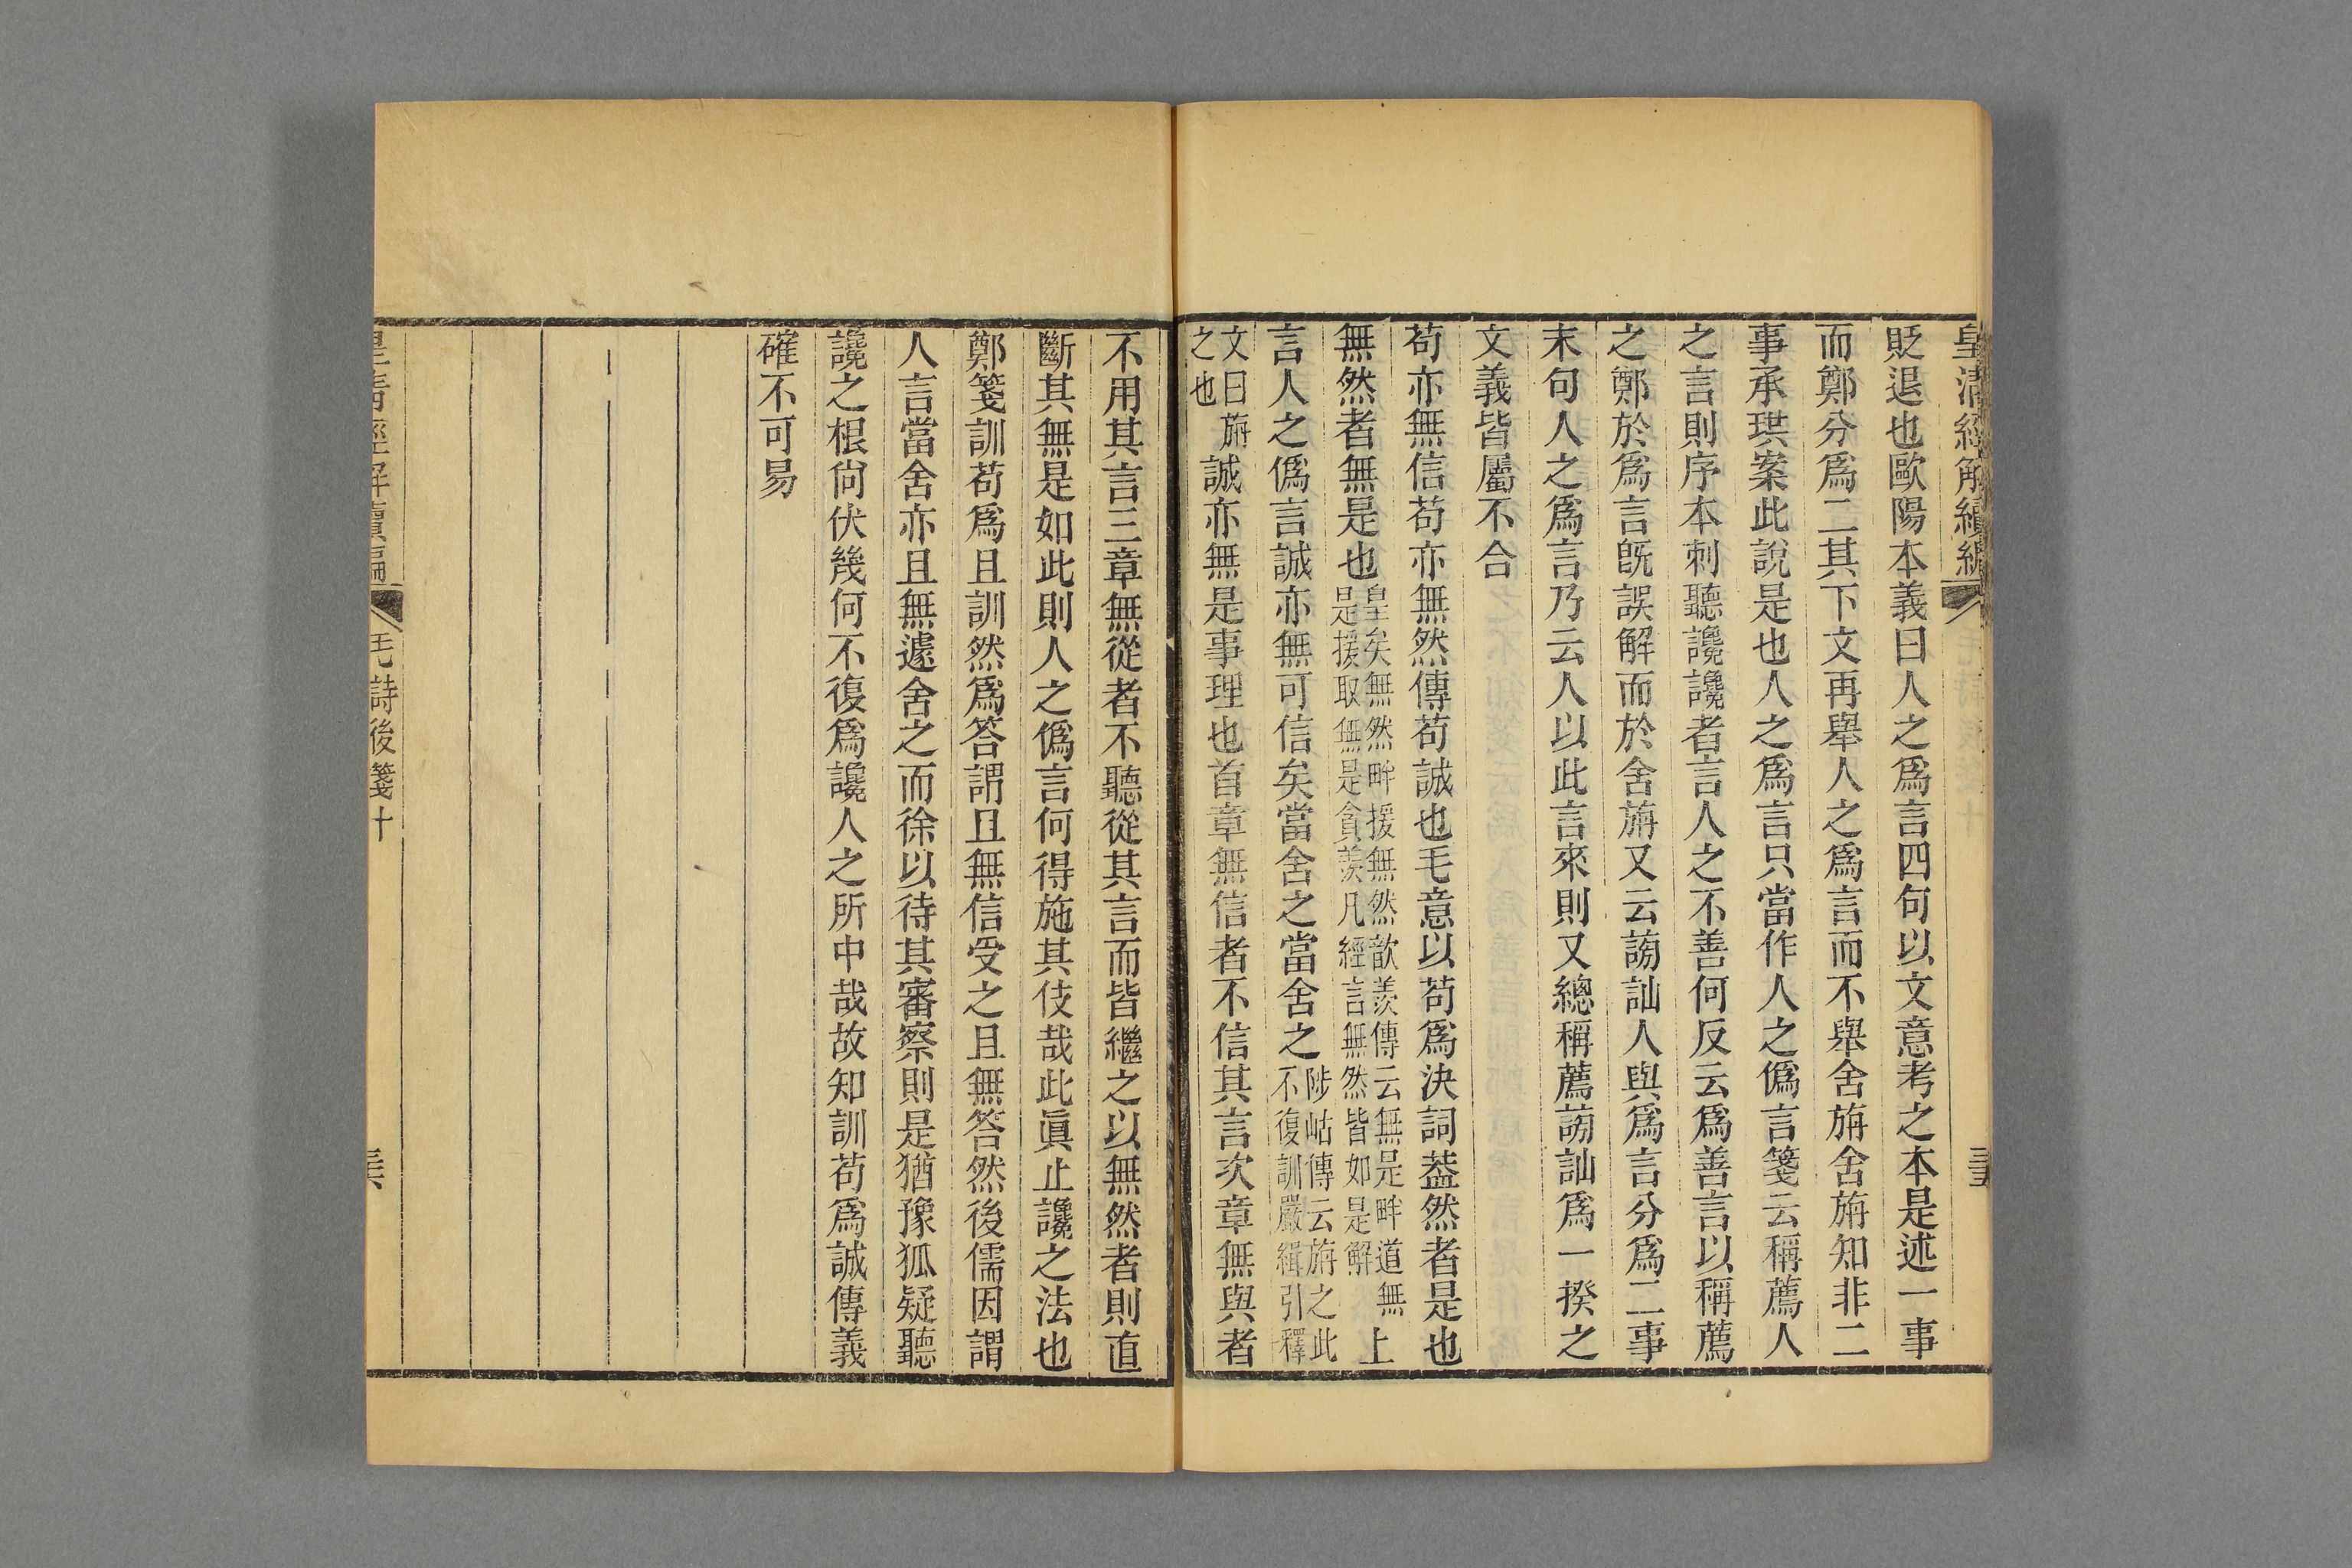 皇清經解續編
貶退也歐陽本義曰人之爲言四句以文意考之本是述一事
而鄭分爲二其下文再舉人之爲言而不舉舍旃舍旃知非二
事承珙案此說是也人之爲言只當作人之僞言箋云稱薦人
之言則序本刺聽讒讒者言人之不善何反云爲善言以稱薦
之鄭於爲言旣誤解而於舍旃又云謗訕人與爲言分爲二事
末句人之爲言乃云人以此言來則又總稱薦謗訕爲一揆之
文義皆屬不合
苟亦無信苟亦無然傳苟誠也毛意以苟爲決詞葢然者是也
無然者無是也皇矣無然畔援無然歆羨傳云無是畔道無
是援取無是貪羨凡經言無然皆如是解上
言人之僞言誠亦無可信矣當舍之當舍之陟岵傳云旃之此
不復訓嚴緝引釋
文曰旃
之也誠亦無是事理也首章無信者不信其言次章無與者
不用其言三章無從者不聽從其言而皆繼之以無然者則直
斷其無是如此則人之僞言何得施其伎哉此眞止讒之法也
鄭箋訓苟爲且訓然爲答謂且無信受之且無答然後儒因謂
人言當舍亦且無遽舍之而徐以待其審察則是猶豫狐疑聽
讒之根尙伏幾何不復爲讒人之所中哉故知訓苟爲誠傳義
確不可易
皇清經解續編
毛詩後箋十